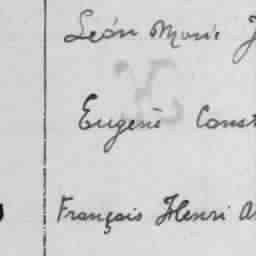 Léon Marie J
Eugène Const
François Henri A